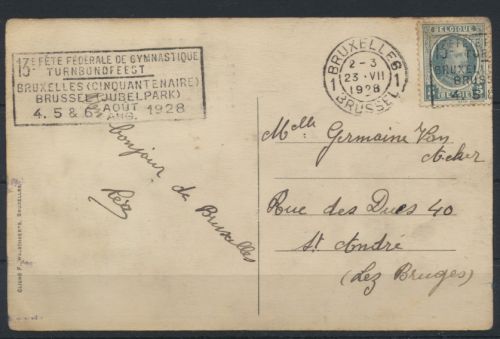 13e FÊTE FÉDÉRALE DE GYMNASTIQUE
TURNBONDFEEST
BRUXELLES (CINQUANTENAIRE)
BRUSSEL (JUBELPARK)
4. 5 & 6 AOUT AUG. 1928
BRUXELLES
2-3
1 23 · VII 1
1928
BRUSSEL
BELGIQUE
bonjour de Bruxelles
Melle Germaine Van
Acker
Rue des Ducs 40
St André
(Lez Bruges)